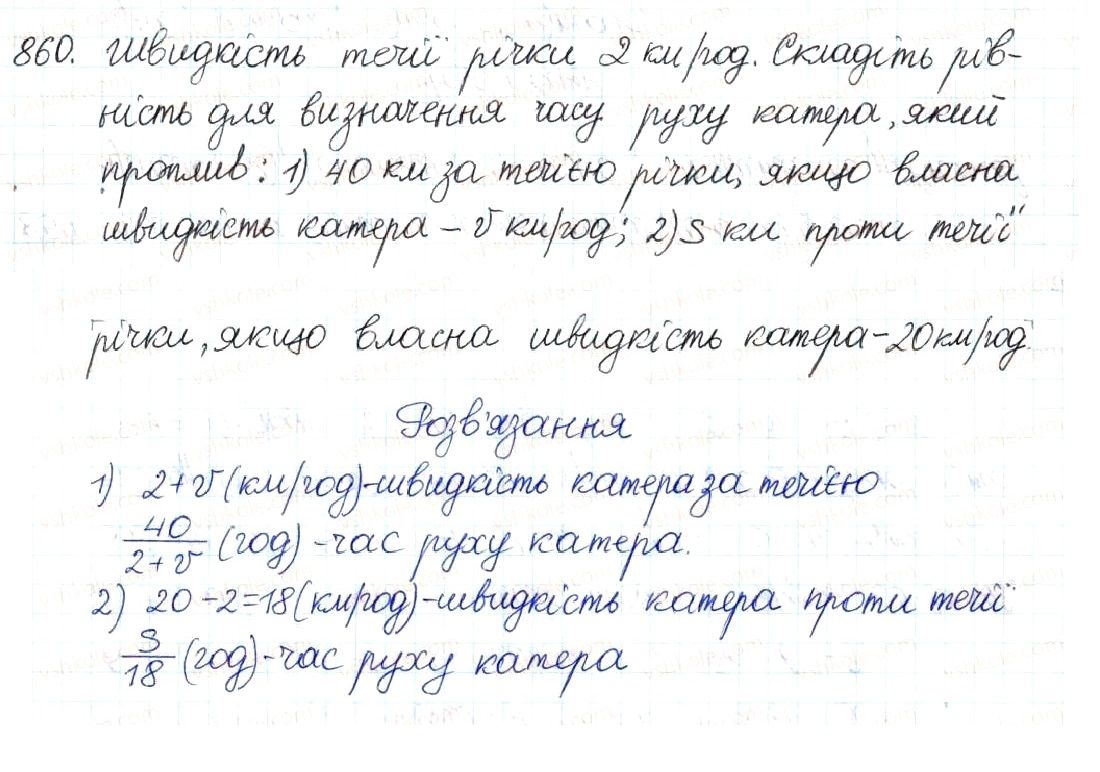 860. Швидкість течії річки 2 км/год. Складіть рів-
ність для визначення часу руху катера, який
проплив: 1) 40 км за течією річки, якщо власна
швидкість катера – v км/год; 2) S км проти течії
річки, якщо власна швидкість катера – 20 км/год.
Розв'язання
1) 2+v (км/год)-швидкість катера за течією
40/(2+v) (год) - час руху катера.
2) 20-2=18 (км/год)-швидкість катера проти течії
S/18 (год)-час руху катера